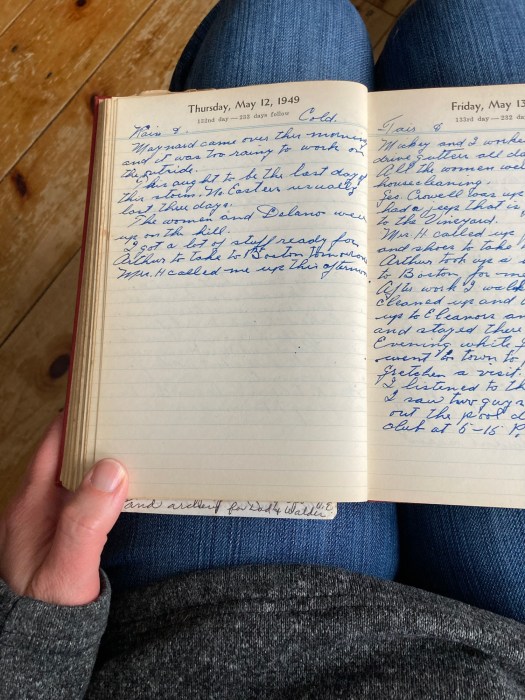 Thursday, May 12, 1949
132nd day—233 days follow
Rain & Cold.
Maynard came over this morning
and it was too rainy to work on
the outside.
This ought to be the last day of
this storm. No Easters usually
last three days.
The women and Delano were
up on the hill.
I got a lot of stuff ready for
Arthur to take to Boston tomorrow
Mrs. H called me up this afternoon
Friday, May 13
133rd day—232 days
Fair &
and I worke
drive gutter all d
All the women we
housecleaning.
Jes. Crowell was up
had a that is
to the Vineyard.
Mrs. H called up
and shoes to take
Arthur took up a
to Boston for m
After work I walk
cleaned up and
up to Eleanors an
and stayed there
Evening while I
went to town to
Gretchen a visit
I listened to th
I saw two guys
out the pool d
club at 5-15 P
and for Dad & Walder